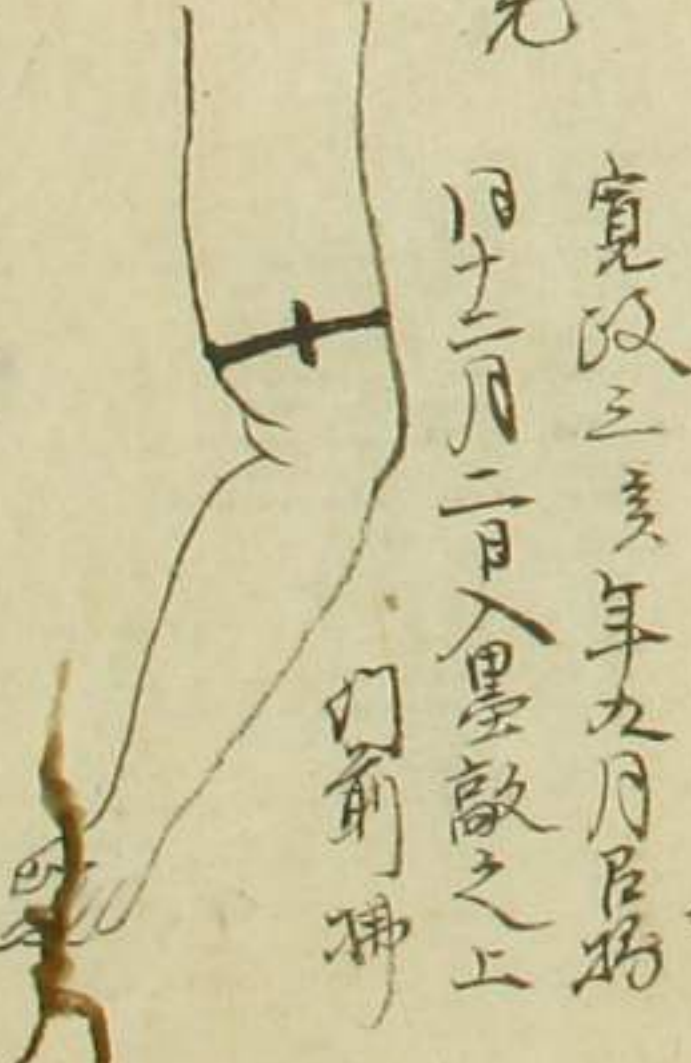 寛政三亥年九月召捕
同十二月二日入墨敲之上
門前拂